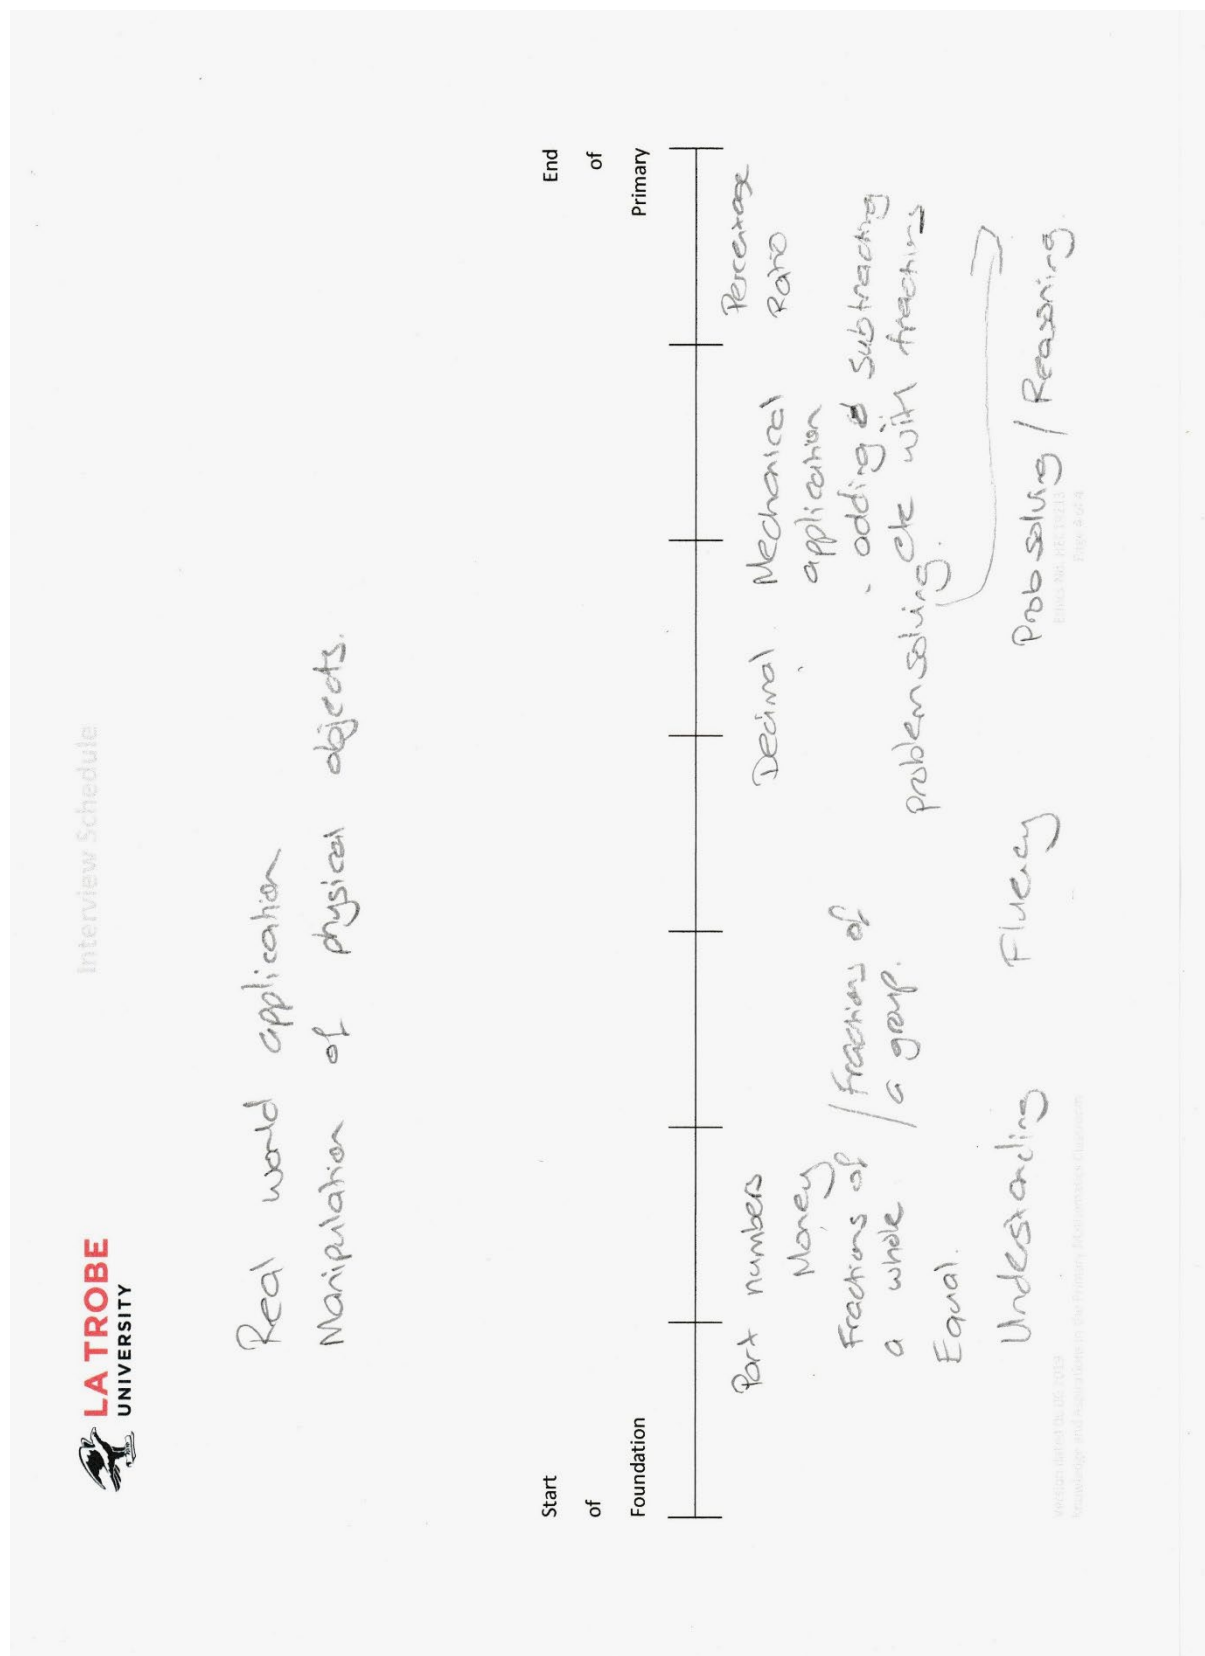 LA TROBE
UNIVERSITY
Interview Schedule
Real world application
Manipulation of physical objects.
Start
of
Foundation
End
of
Primary
Part numbers
Money
Fractions of
a whole
/ Fractions of
a group.
Equal.
Decimal
Mechanical
application
- adding & subtracting
etc with fractions
problem solving.
Percentage
Ratio
Understanding
Fluency
Prob solving / Reasoning.
Version dated 06.05.2019
Knowledge and Aspirations in the Primary Mathematics Classroom
Page 4 of 4